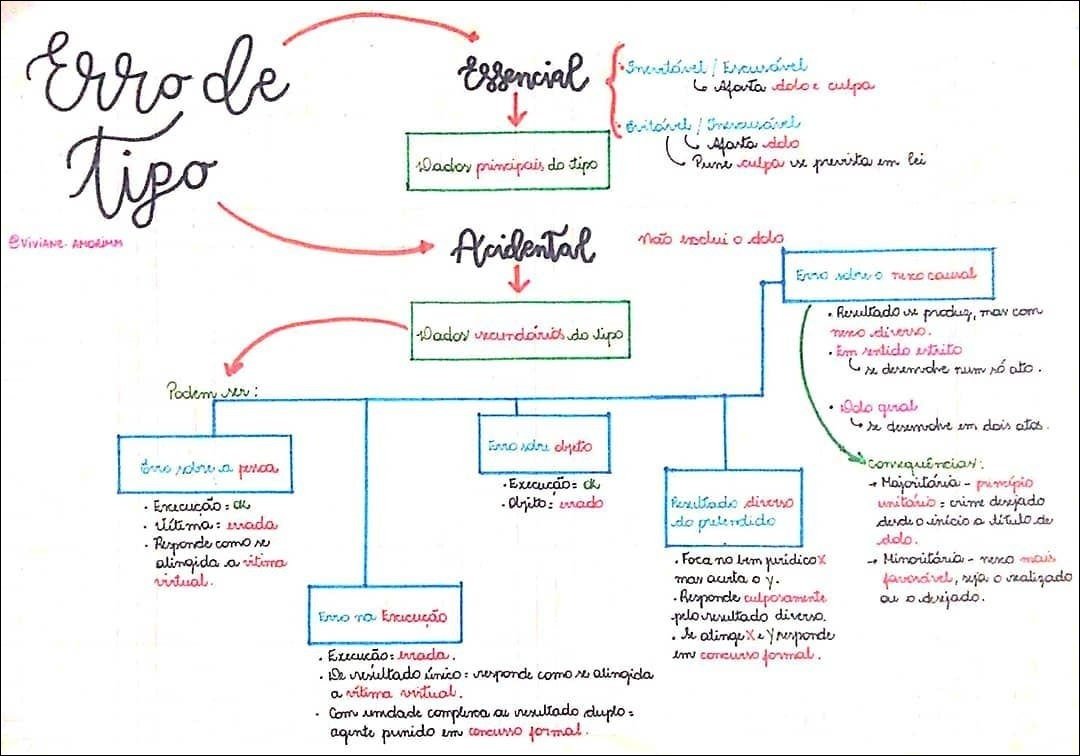 Erro de
Tipo
@VIVIANE.AMORIMM
Essencial
• Inevitável / Escusável
↳ Afasta dolo e culpa
• Evitável / Inescusável
↳ Afasta dolo
↳ Pune culpa se prevista em lei
Dados principais do tipo
Acidental
Não exclui o dolo
Dados secundários do tipo
Erro sobre o nexo causal
• Resultado se produz, mas com
nexo diverso.
• Em sentido estrito
↳ se desenvolve num só ato.
• Dolo geral
↳ se desenvolve em dois atos.
Consequências:
→ Majoritária - princípio
unitário: crime desejado
desde o início a título de
dolo.
→ Minoritária - nexo mais
favorável, seja o realizado
ou o desejado.
Podem ser:
Erro sobre a pessoa
• Execução: ok
• Vítima: errada
• Responde como se
atingida a vítima
virtual.
Erro na Execução
• Execução: errada.
• De resultado único: responde como se atingida
a vítima virtual.
• Com unidade complexa ou resultado duplo:
agente punido em concurso formal.
Erro sobre objeto
• Execução: ok
• Objeto: errado
Resultado diverso
do pretendido
• Foca no bem jurídico X
mas acerta o y.
• Responde culposamente
pelo resultado diverso.
• Se atinge X e Y responde
em concurso formal.